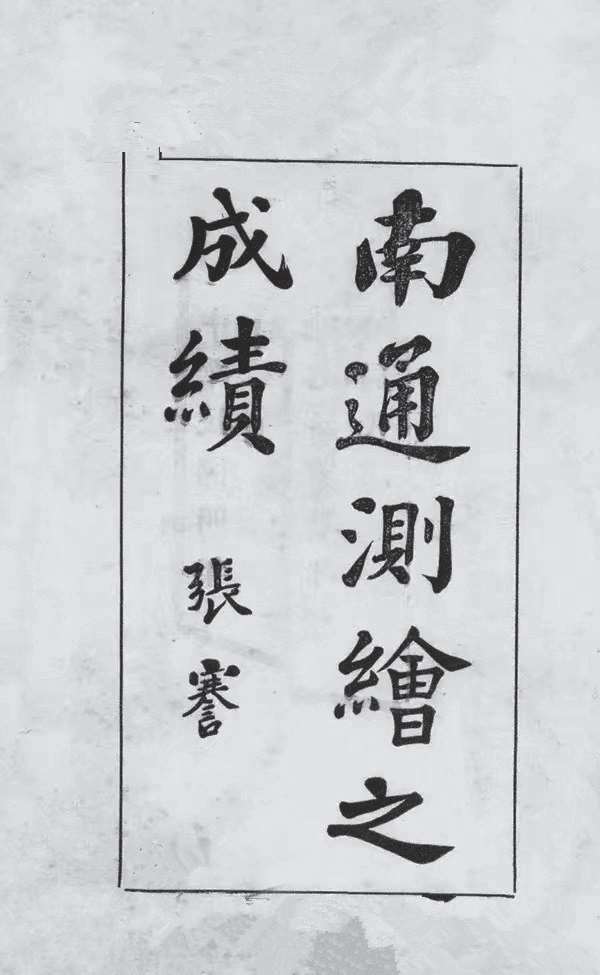 南通測繪之
成績
張謇